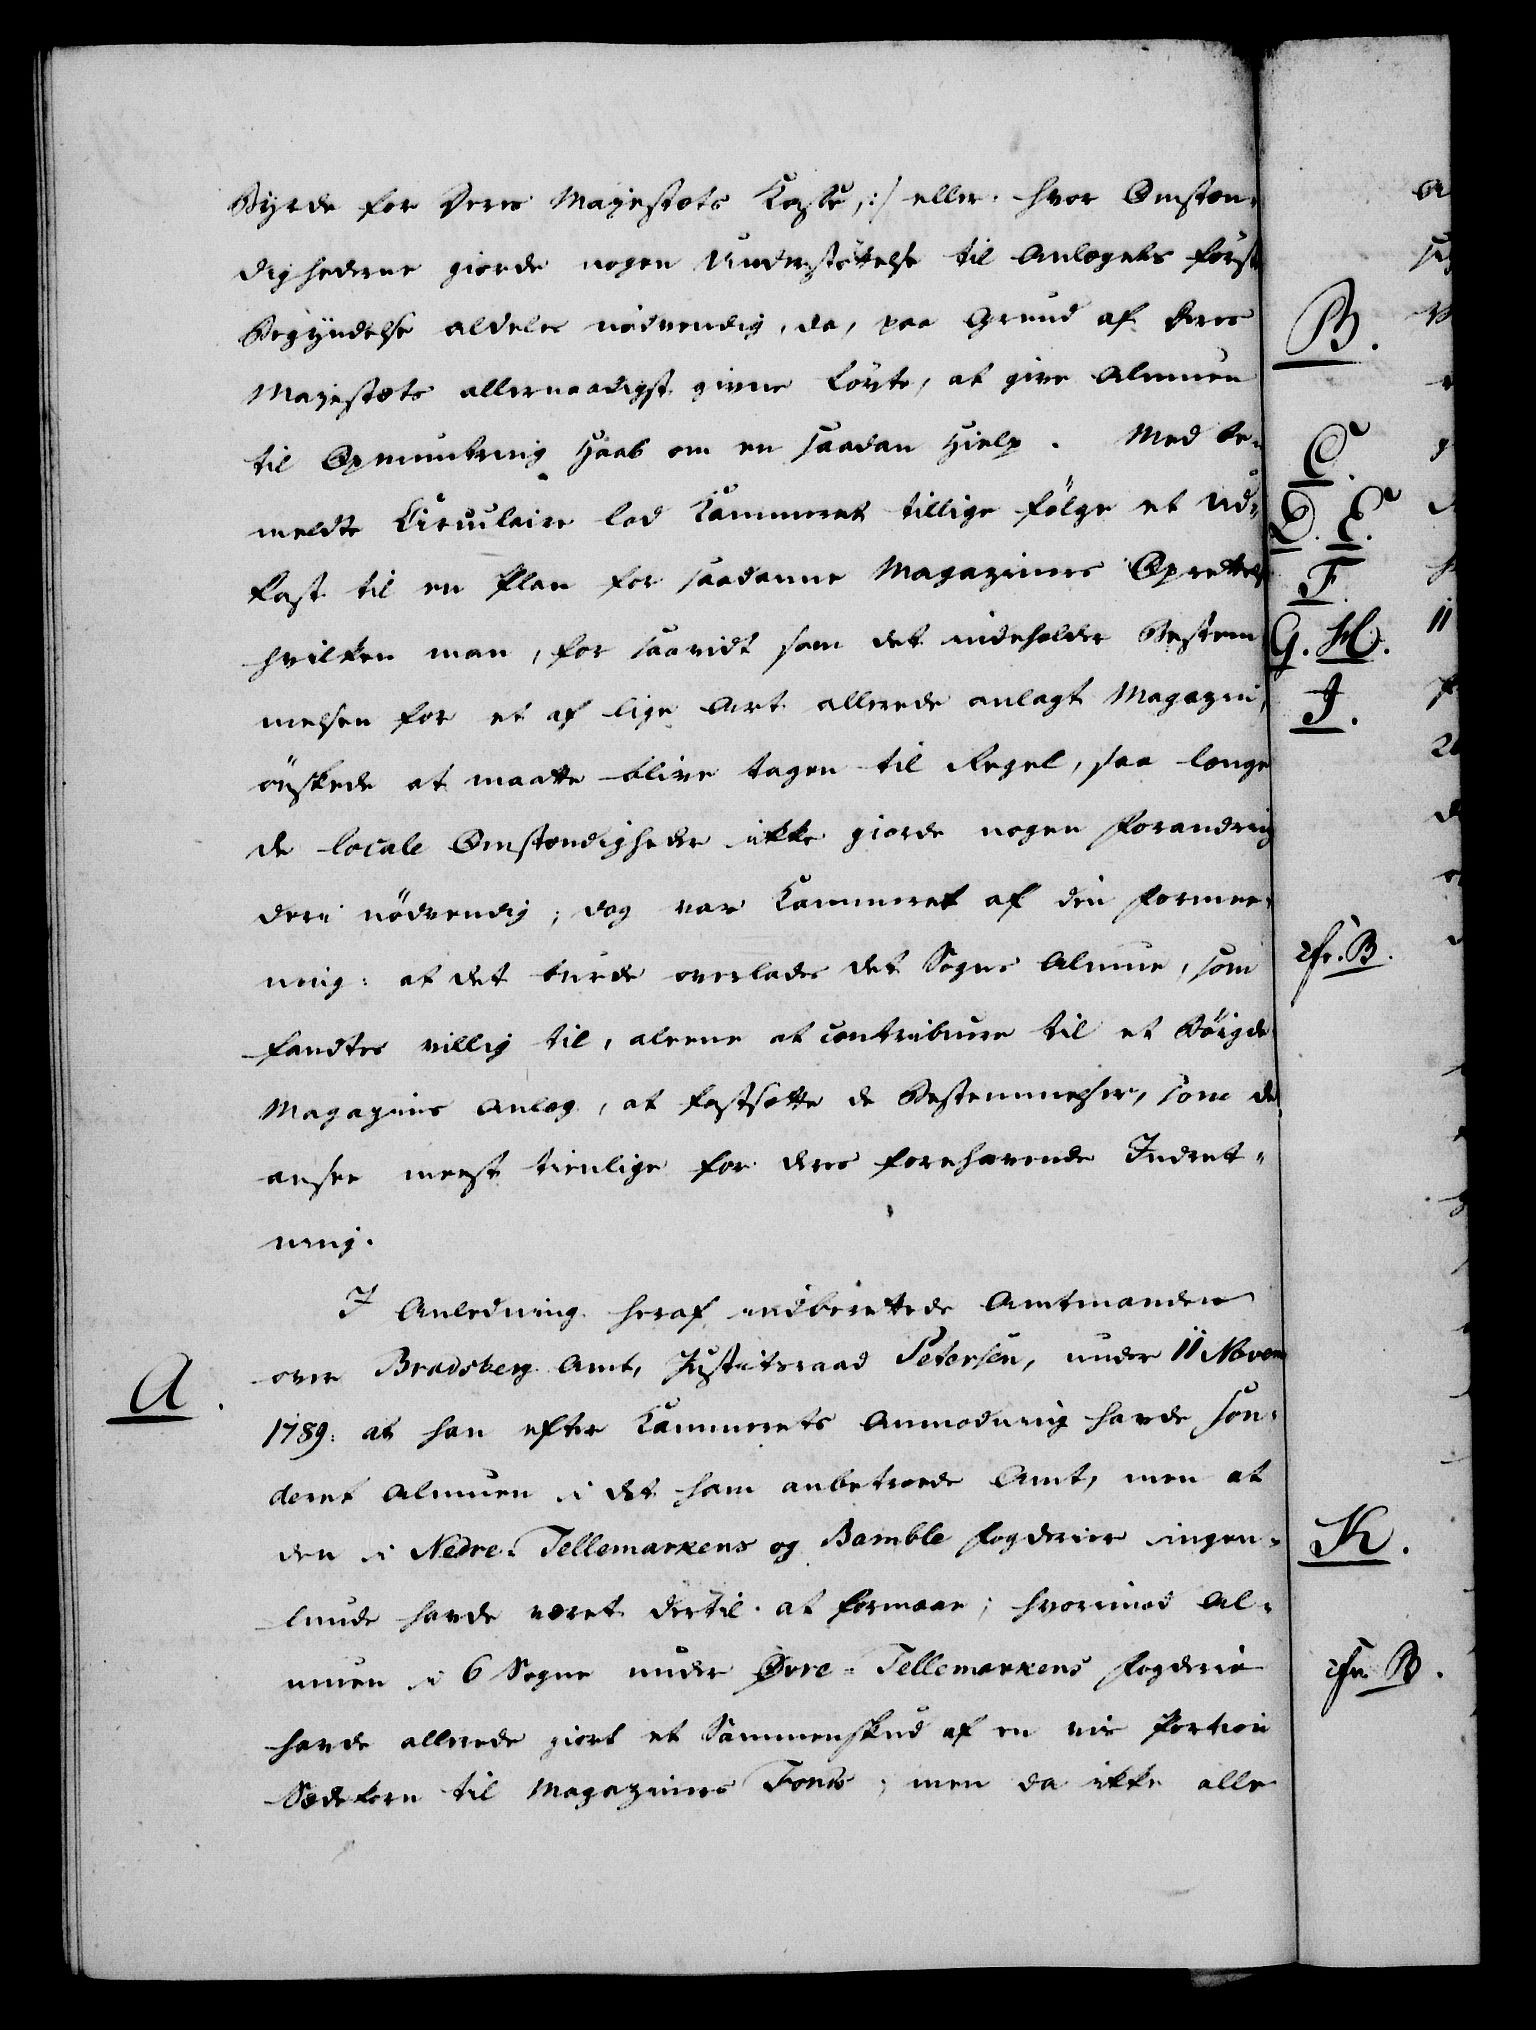 Byrde for Deres Majestæts Kasse, :/ eller hvor Omstæn-
dighederne giorde nogen Understöttelse til Anlægets först
Begyndelse aldeles nödvendig, da, paa Grund af Deres
Majestæts allernaadigst givne Lövte, at give Almuen
til Opmuntring Haab om en saadan Hielp. Med be-
meldte Circulaire lod Kammeret tillige fölge et Ud-
kast til en Plan for saadanne Magaziners Oprettelse
hvilken man, for saavidt som det indeholder Bestem-
melsen for et af lige Art allerede anlagt Magazin,
önskede at maatte blive tagen til Regel, saa længe
de locale Omstændigheder ikke giorde nogen Forandring
deri nödvendig; dog var Kammeret af den Formee-
ning: at det burde overlades det Sogns Almue, som
fandtes villig til, aleene at contribuere til et Böigde
Magazins Anlæg, at fastsætte de Bestemmelser, som de
ansee meest tienlige for deres forehavende Indret-
ning.
I Anledning heraf indberettede Amtmanden
over Bradsberg Amt, Justitsraad Petersen, under 11 Novem
1789: at han efter Kammerets Anmodning havde son-
deret Almuen i det ham anbetroede Amt, men at
den i Nedre-Tellemarkens og Bamble Fogderier ingen-
lunde havde været dertil at formaae; hvorimod Al-
muen i 6 Sogne under Øvre-Tellemarkens Fogderie
havde allerede giort et Sammenskud af en vis Portion
Sædekorn til Magaziners Fonds; men da ikke alle
A.
B.
C.
D. E.
F
G. H.
I.
cfr. B.
K.
cfr. B.